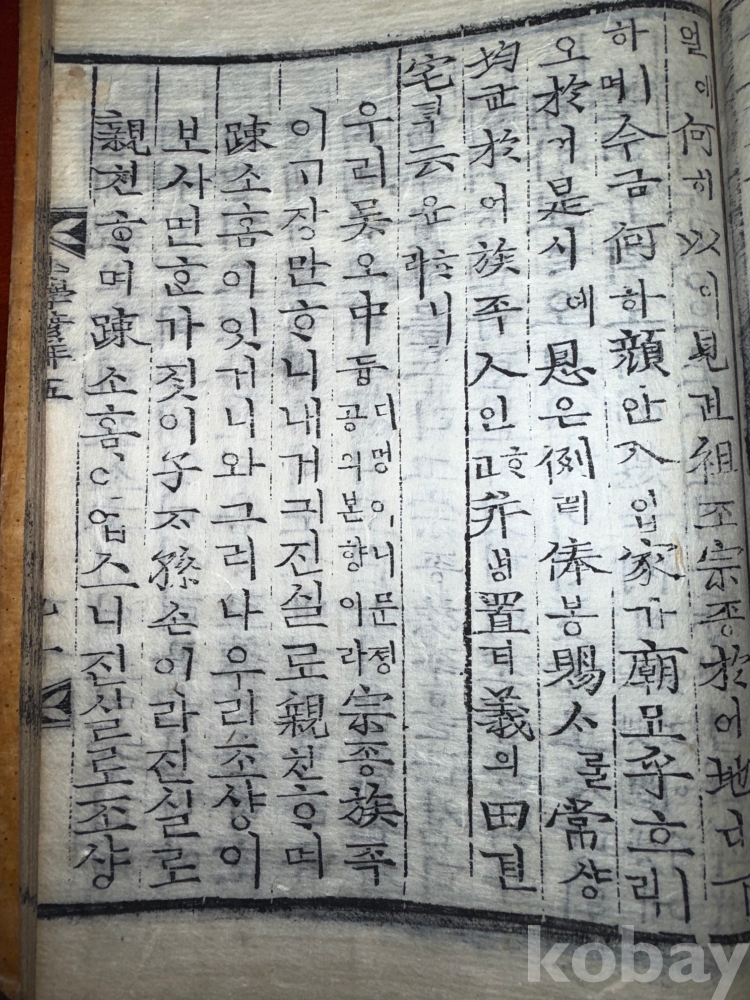 일에何하以이見견祖조宗종於어地디下
하며今금何하顔안入입家가廟묘乎호리
오於어是시예恩은例례俸봉賜ᄉᆞ를常샹
均균於어族족人인ᄒᆞ고幷병置티義의田뎐
宅ᄐᆡᆨ云운ᄒᆞ니라
우리吳오中듕디명이니문졍공의본향이라宗종族족
이ᄀᆞ장만ᄒᆞ니내거긔진실로親친ᄒᆞ며
踈소홈이잇거니와그러나우리조샹이
보시면ᄒᆞᆫ가짓이子ᄌᆞ孫손이라진실로
親친ᄒᆞ며踈소홈이업스니진실로조샹
kobay